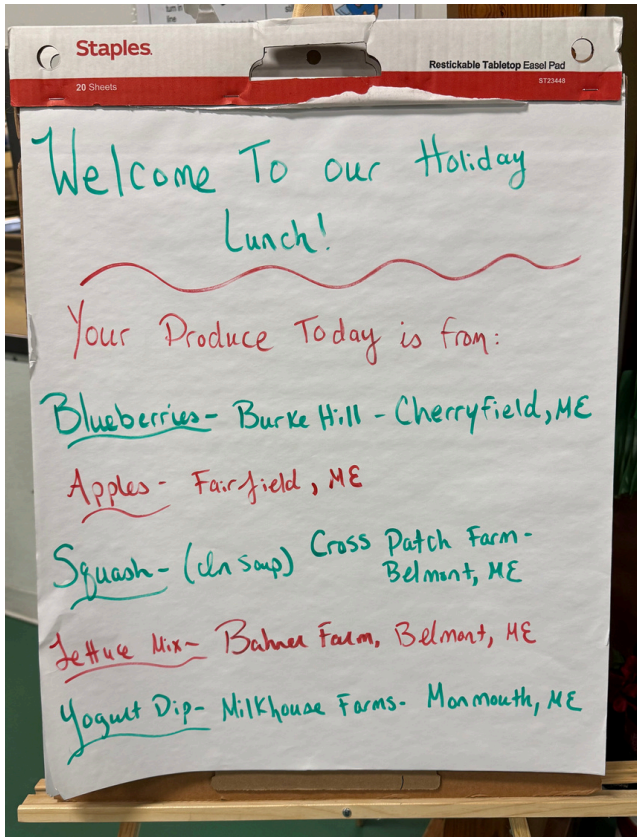 Staples.
20 Sheets
Restickable Tabletop Easel Pad
ST23448
Welcome To our Holiday
Lunch!
Your Produce Today is from:
Blueberries- Burke Hill - Cherryfield, ME
Apples- Fairfield, ME
Squash- (In Soup) Cross Patch Farm-
Belmont, ME
Lettuce Mix- Bahner Farm, Belmont, ME
Yogurt Dip- Milkhouse Farms- Monmouth, ME